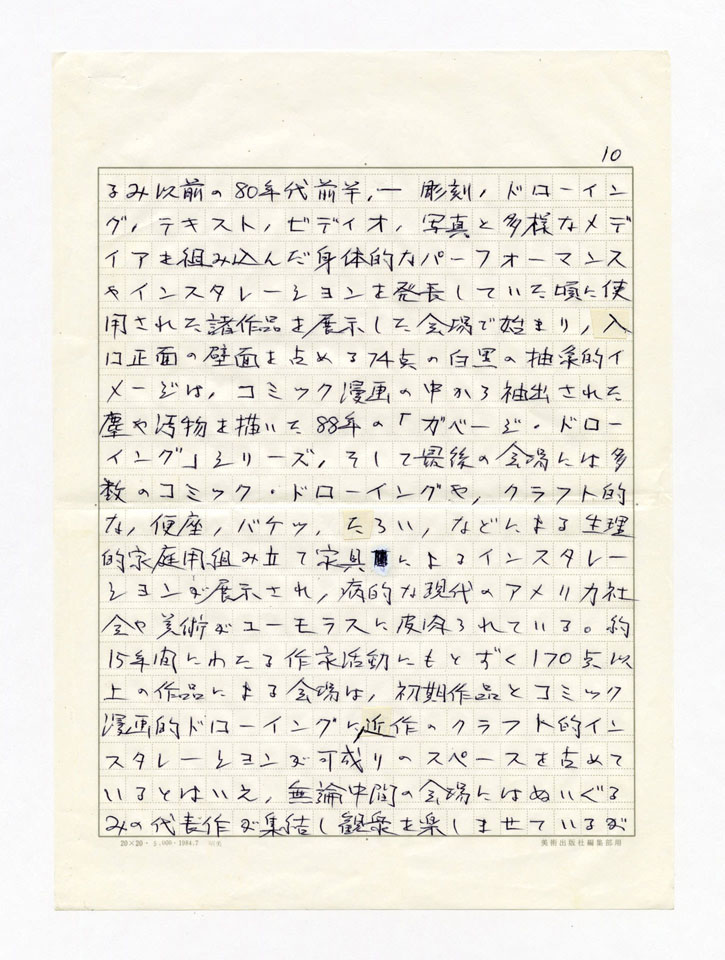 10
るみ以前の80年代前半,― 彫刻,ドローイン
グ,テキスト,ビディオ,写真と多様なメデ
イアを組み込んだ身体的なパーフォーマンス
やインスタレーションを発表していた頃に使
用された諸作品を展示した会場で始まり,入
口正面の壁面を占める74点の白黒の抽象的イ
メージは,コミック漫画の中から抽出された
塵や汚物を描いた88年の「ガベージ・ドロー
イング」シリーズ,そして最後の会場には多
数のコミック・ドローイングや,クラフト的
な,便座,バケツ,たらい,などによる生理
的家庭用組み立て家具によるインスタレー
ションが展示され,病的な現代のアメリカ社
会や美術がユーモラスに皮肉られている。約
15年間にわたる作家活動にもとずく170点以
上の作品による会場は,初期作品とコミック
漫画的ドローイングに近作のクラフト的イン
スタレーションが可成りのスペースを占めて
いるとはいえ,無論中間の会場にはぬいぐる
みの代表作が集結し観衆を楽しませているが
20×20 - 5,000 - 1984.7
美術出版社編集部用